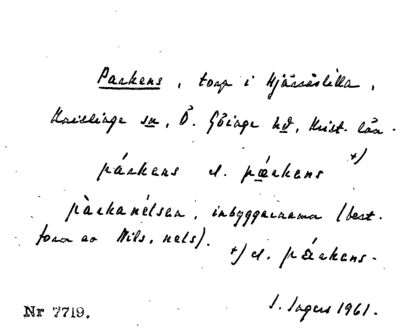 Parkens, torp i Hjärsåslilla,
Knislinge sn, Ö. Göinge hd, Krist. län.
+)
párkens el. pærkens
pàrkanélsen, inbyggarnamn (best.
form av Nils, nels).
+) el. pǽrkens.
Nr 7719.
I. Ingers 1961.